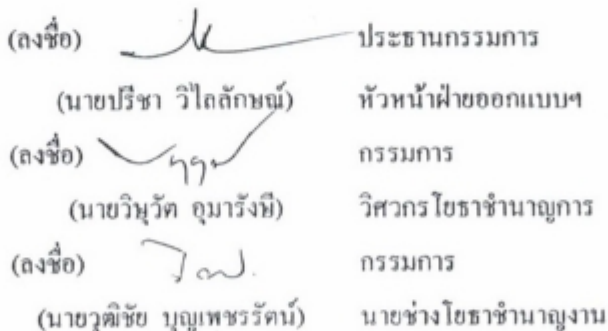 (ลงชื่อ) ประธานกรรมการ
(นายปรีชา วิไลลักษณ์) หัวหน้าฝ่ายออกแบบฯ
(ลงชื่อ) กรรมการ
(นายวิษุวัต อุมารังษี) วิศวกรโยธาชำนาญการ
(ลงชื่อ) กรรมการ
(นายวุฒิชัย บุญเพชรรัตน์) นายช่างโยธาชำนาญงาน